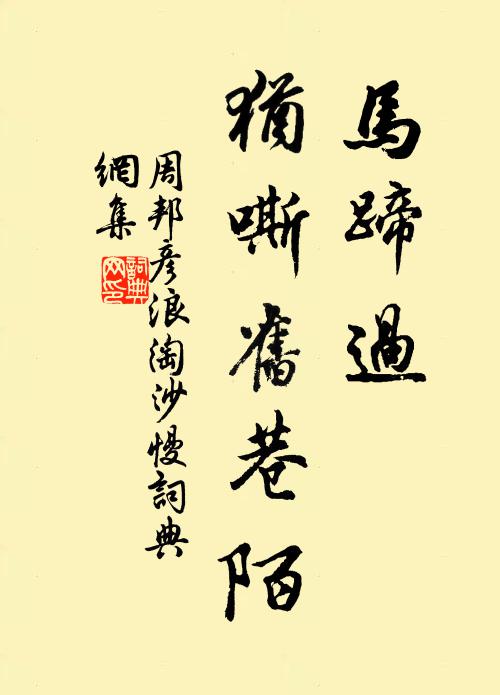 馬蹄過
猶嘶舊巷陌
周邦彥浪淘沙慢詞典
網集
詞典網印